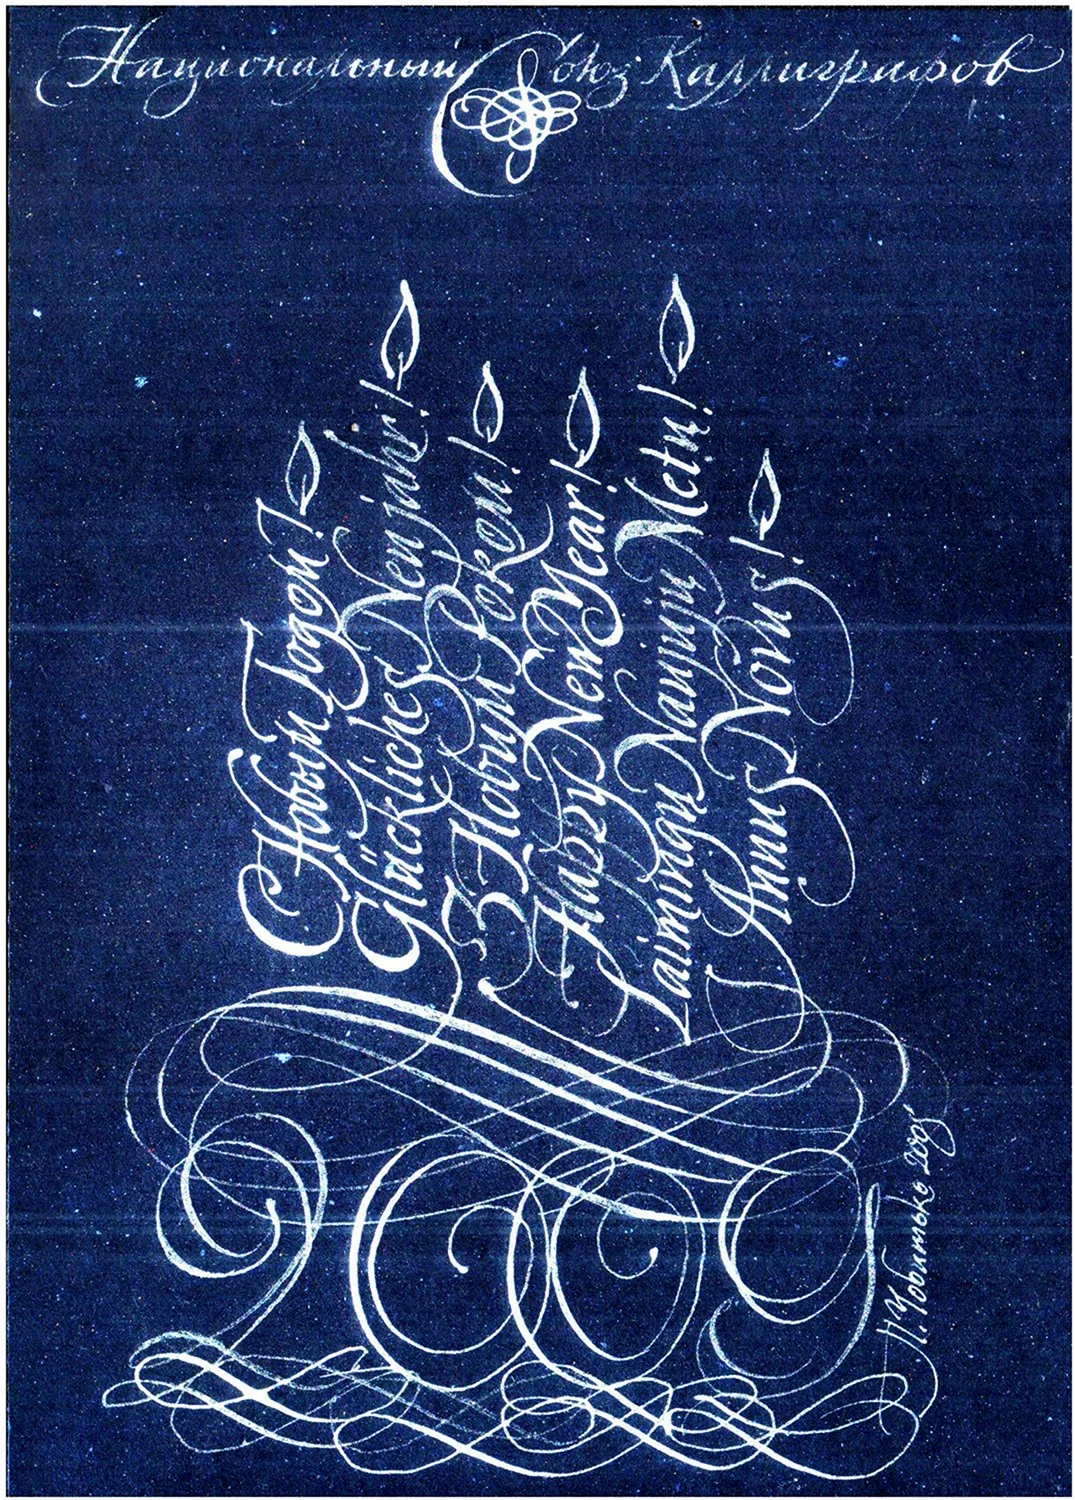 Национальный Союз Каллиграфов
С Новый Годом!
Glückliches Neujahr!
З Новим Роком!
Happy New Year!
Laimingų Naujųjų Metų!
Annus Novus!
2009
П. Чобитько 2009